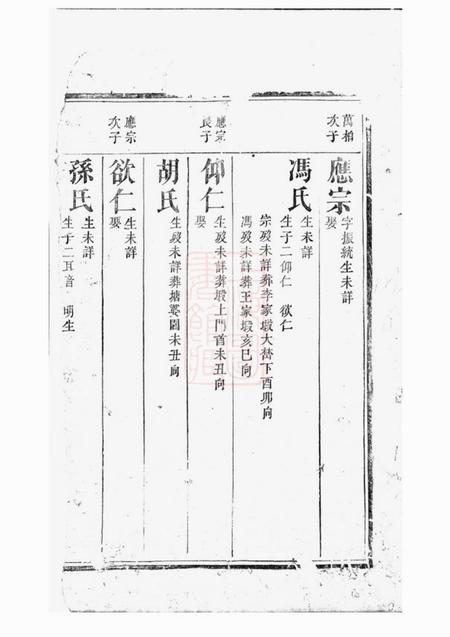 萬相
次子
應宗
字振統生未詳
娶
馮氏
生未詳
生子二仰仁 欲仁
宗歿未詳葬李家塅大替下酉卯向
馮歿未詳葬王家塅亥巳向
應宗
長子
仰仁
生歿未詳葬塅上門首未丑向
娶
胡氏
生歿未詳葬塘婆圖未丑向
應宗
次子
欲仁
生未詳
娶
孫氏
生未詳
生子二 音 明生